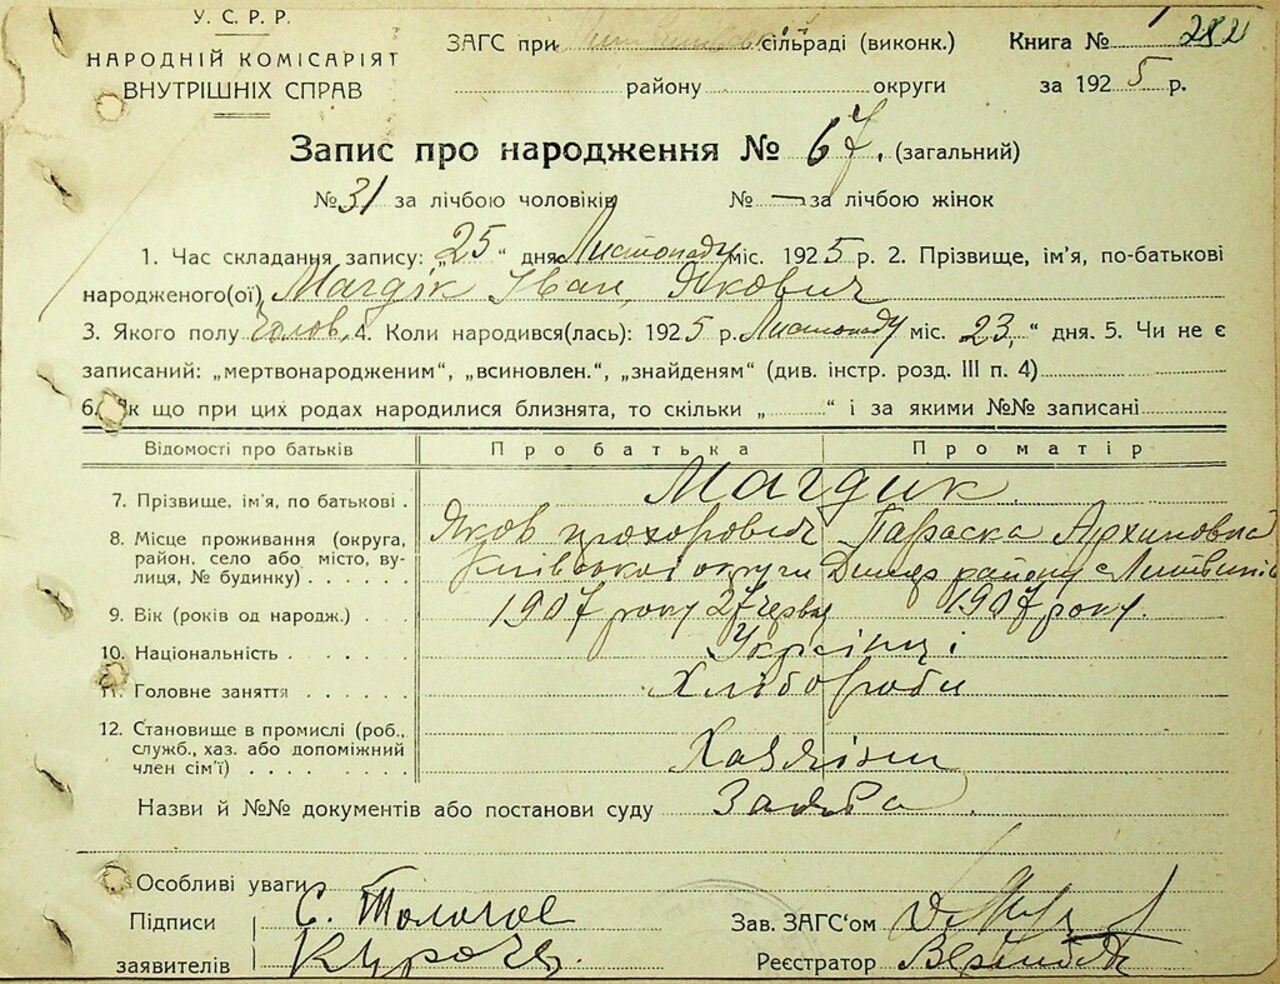 У. С. Р. Р.
НАРОДНІЙ КОМІСАРІЯТ
ВНУТРІШНІХ СПРАВ
ЗАГС при сільраді (виконк.)
району округи
Книга № 1 282
за 1925 р.
Запис про народження № 67. (загальний)
№ 31 за лічбою чоловіків № — за лічбою жінок
1. Час складання запису: „25“ дня Листопаду міс. 1925 р. 2. Прізвище, ім'я, по-батькові
народженого(ої) Магдік Іван, Якович
3. Якого полу Чолов. 4. Коли народився(лась): 1925 р. Листопаду міс. 23, “ дня. 5. Чи не є
записаний: „мертвонародженим“, „всиновлен.“, „знайденям“ (див. інстр. розд. III п. 4)
6. Як що при цих родах народилися близнята, то скільки „ “ і за якими №№ записані
Відомості про батьків Про батька Про матір
7. Прізвище, ім'я, по батькові . Магдик
Яков прохорович Параска Архиповна
8. Місце проживання (округа,
район, село або місто, ву-
лиця, № будинку) . . . . . . Київської округи район с
9. Вік (років од народж.) . 1907 року 27 червня 1907 року.
10. Національність . . . . . Українці
11. Головне заняття . . . . . . Хлібороби
12. Становище в промислі (роб.,
служб., хаз. або допоміжний
член сім'ї) . . . . . . . . Хазяїни
Назви й №№ документів або постанови суду Заява
Особливі уваги
Підписи
заявителів
Зав. ЗАГС'ом
Реєстратор